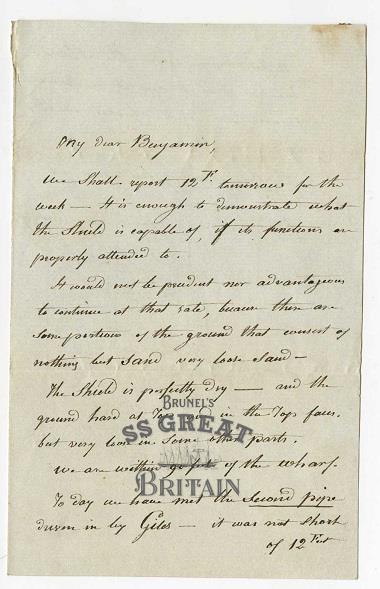 My dear Benjamin,
We Shall report 12 F. tomorrow for the
week — It is enough to demonstrate what
the Shield is capable of, if its functions are
properly attended to.
It would not be prudent nor advantageous
to continue at that rate, because there are
some portions of the ground that consist of
nothing but sand very loose sand —
The Shield is perfectly dry — and the
ground hard at Top and in the Top faces.
but very loose in some other parts.
We are within 90 feet of the wharf.
To day we have met the second pipe
driven in by Giles — it was not short
of 12 Feet
BRUNEL'S
SS GREAT
BRITAIN